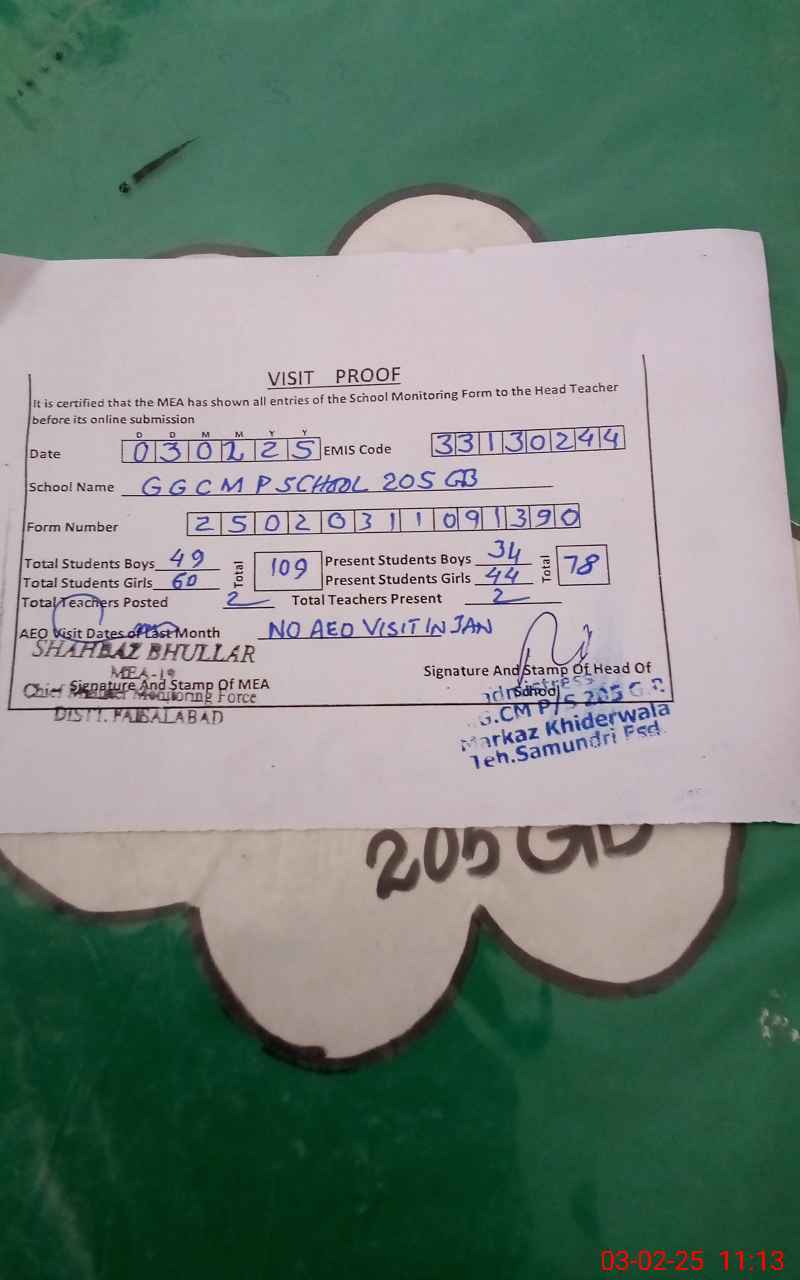 VISIT PROOF
It is certified that the MEA has shown all entries of the School Monitoring Form to the Head Teacher
before its online submission
D D M M Y Y
Date 030225 EMIS Code 33130244
School Name GGCMP SCHOOL 205 GB
Form Number 25020311091390
Total Students Boys 49 Total 109 Present Students Boys 34 Total 78
Total Students Girls 60 Present Students Girls 44
Total Teachers Posted 2 Total Teachers Present 2
AEO Visit Dates of Last Month NO AEO VISIT IN JAN
SHAHBAZ BHULLAR
MEA-19
Signature And Stamp Of MEA
Chief Minister Monitoring Force
DISTT. FAISALABAD
Signature And Stamp Of Head Of
School
G.CM P/S 205 G.B
Markaz Khiderwala
Teh.Samundri Fsd.
205 GB
03-02-25 11:13